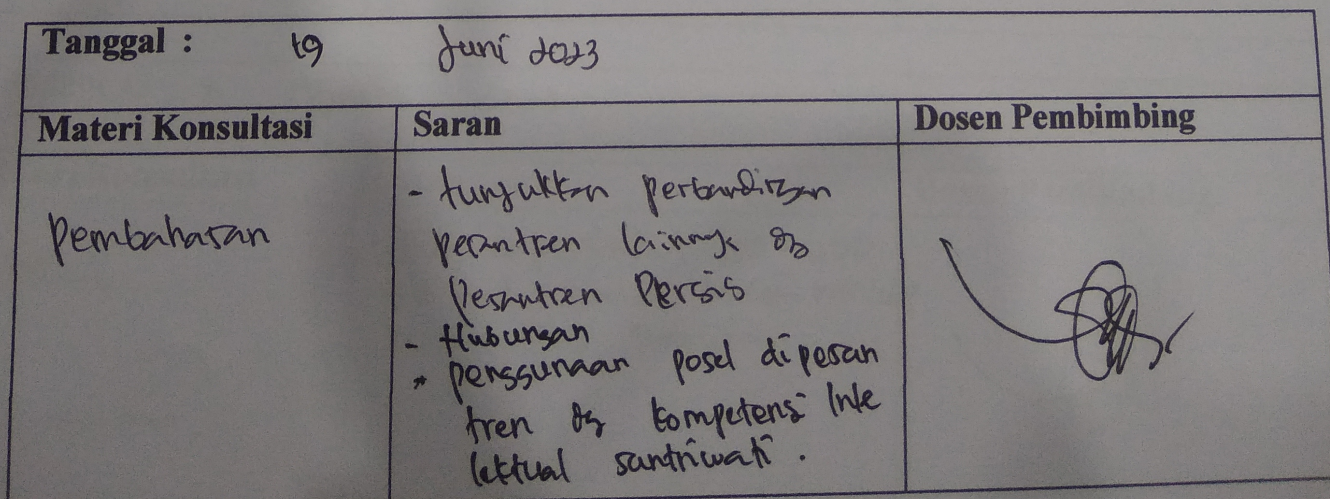 Tanggal : 19 Juni 2023
Materi Konsultasi Saran Dosen Pembimbing
Pembahasan
- tunjukkan perbandingan
pesantren lainnya dg
pesantren Persis
- Hubungan
* penggunaan posel dipesan
tren dg kompetensi Inte
lektual santriwati.